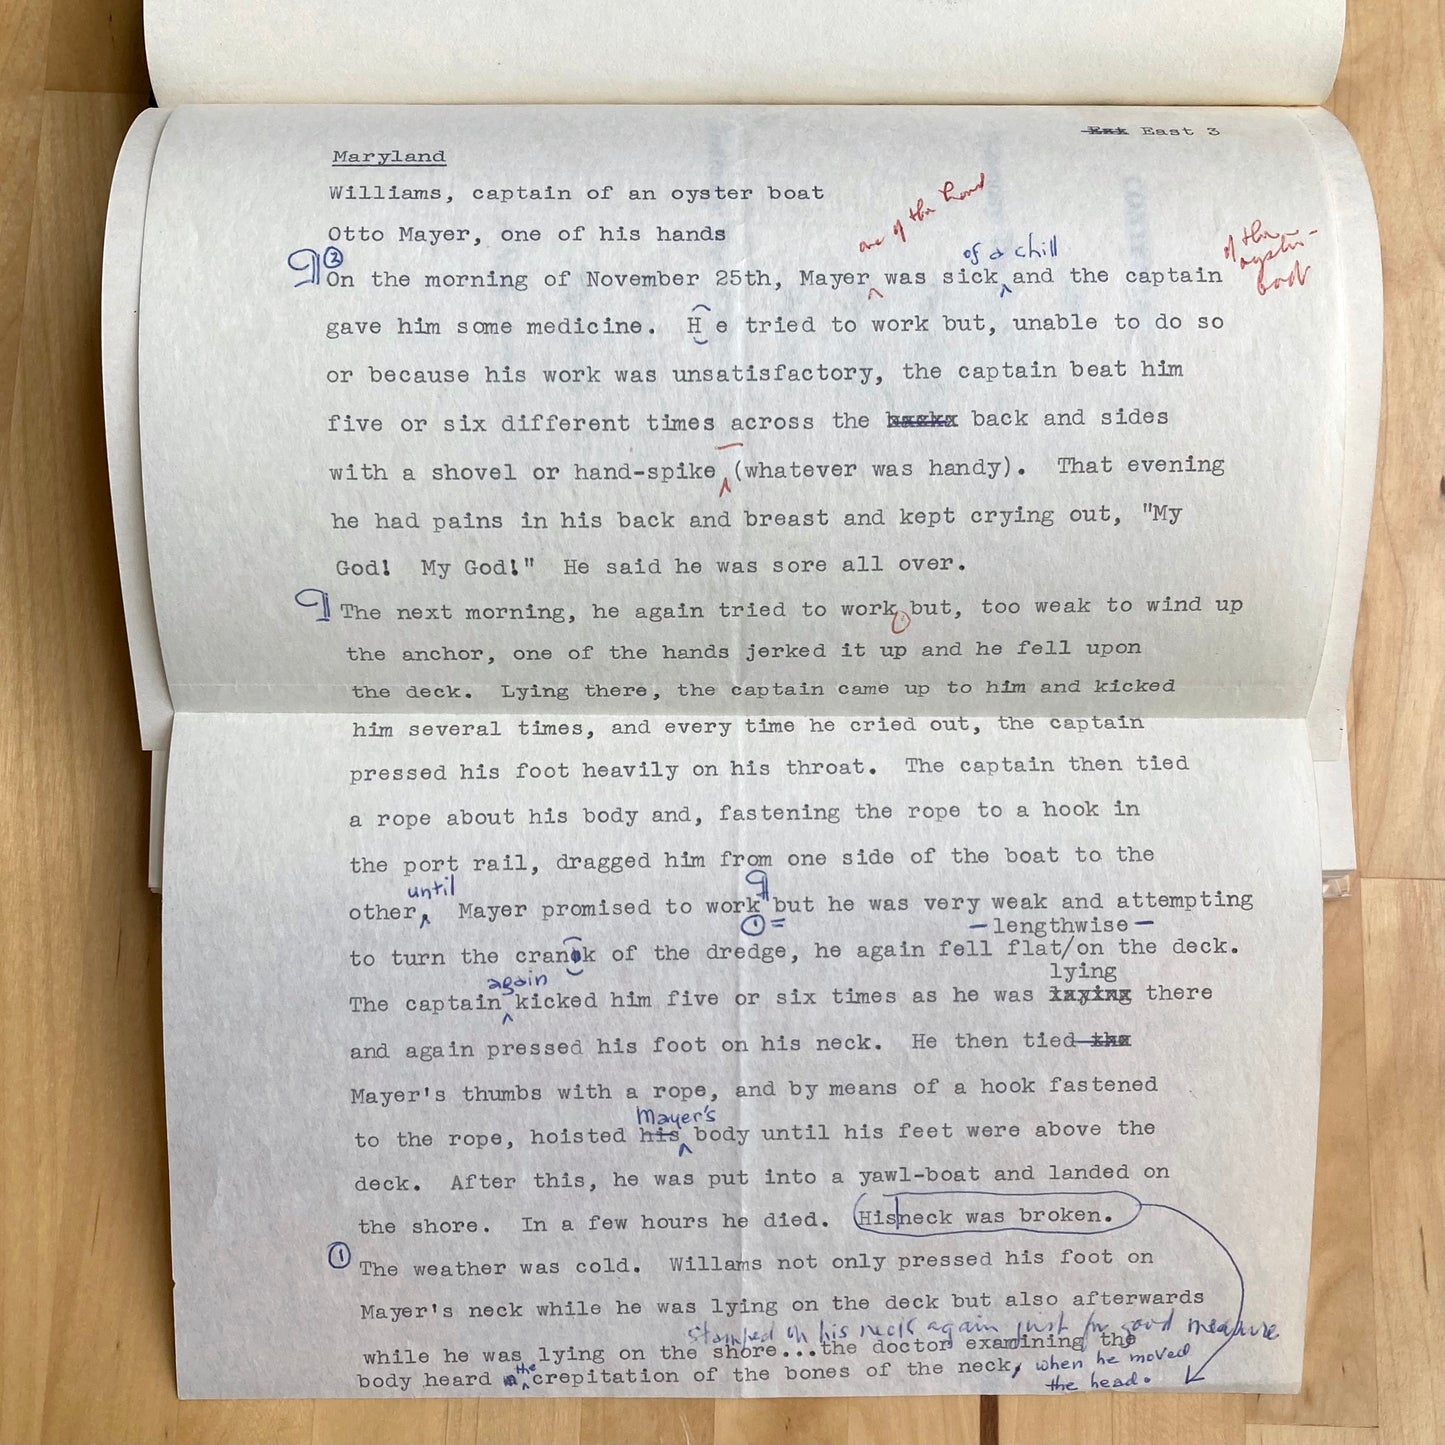 East 3
Maryland
Williams, captain of an oyster boat
one of the hands
Otto Mayer, one of his hands
of a chill
of the oyster boat
¶ ② On the morning of November 25th, Mayer ‸ was sick ‸ and the captain
gave him some medicine.  H e tried to work but, unable to do so
or because his work was unsatisfactory, the captain beat him
five or six different times across the back and sides
with a shovel or hand-spike ‸ (whatever was handy).  That evening
he had pains in his back and breast and kept crying out, "My
God!  My God!"  He said he was sore all over.
¶ The next morning, he again tried to work but, too weak to wind up
the anchor, one of the hands jerked it up and he fell upon
the deck.  Lying there, the captain came up to him and kicked
him several times, and every time he cried out, the captain
pressed his foot heavily on his throat.  The captain then tied
a rope about his body and, fastening the rope to a hook in
the port rail, dragged him from one side of the boat to the
until ¶
other, ‸ Mayer promised to work but he was very weak and attempting
① = —lengthwise—
to turn the crank of the dredge, he again fell flat/on the deck.
again lying
The captain ‸ kicked him five or six times as he was laying there
and again pressed his foot on his neck.  He then tied the
Mayer's thumbs with a rope, and by means of a hook fastened
Mayer's
to the rope, hoisted his ‸ body until his feet were above the
deck.  After this, he was put into a yawl-boat and landed on
the shore.  In a few hours he died.  His neck was broken.
① The weather was cold.  Willams not only pressed his foot on
Mayer's neck while he was lying on the deck but also afterwards
stamped on his neck again just for good measure
while he was lying on the shore...the doctor examining the
the when he moved
body heard ‸ crepitation of the bones of the neck,
the head.